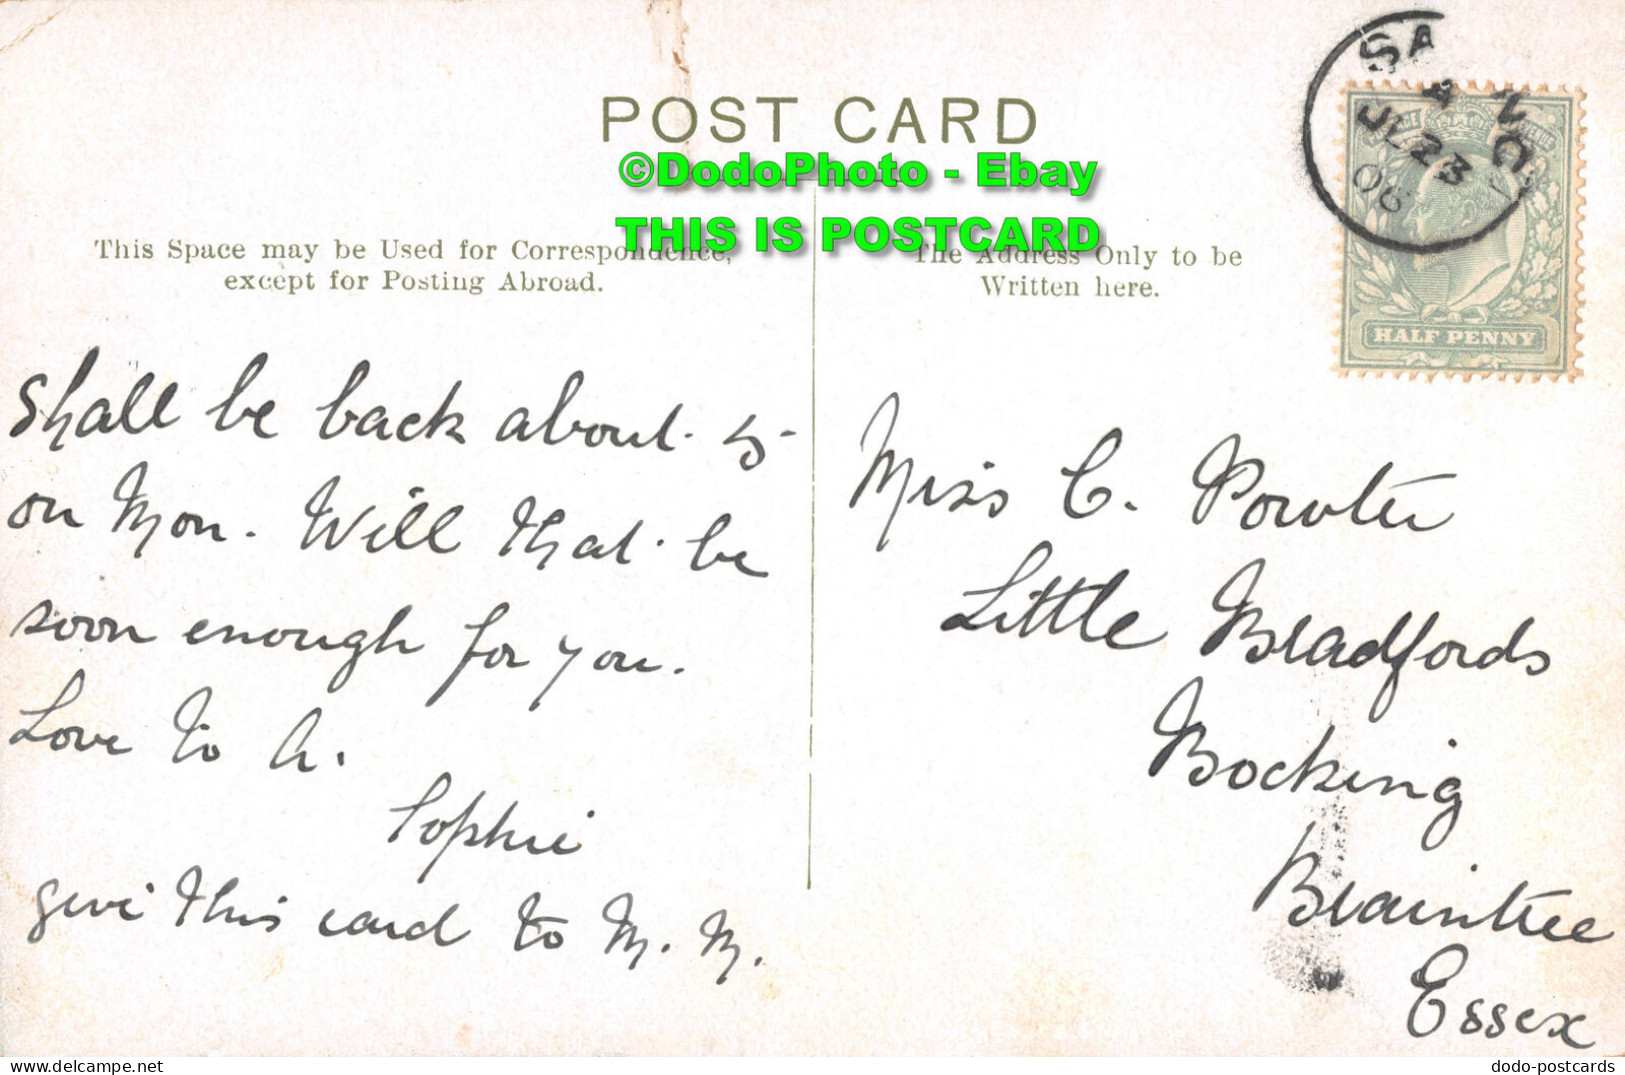 POST CARD
©DodoPhoto - Ebay
THIS IS POSTCARD
This Space may be Used for Correspondence,
except for Posting Abroad.
The Address Only to be
Written here.
JL 23
06
HALF PENNY
Shall be back about 5
on Mon. Will that be
soon enough for you.
Love to A.
Sophie
give this card to M. M.
Miss C. Powter
Little Bradfords
Bocking
Braintree
Essex
dodo-postcards